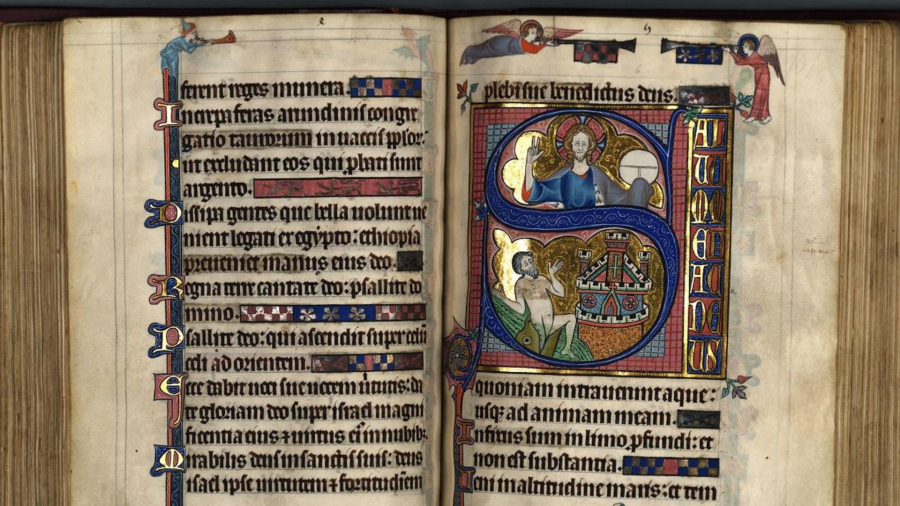 ferent reges munera.
Increpa feras arundinis congre
gatio taurorum in vaccis pplor:
ut excludant eos qui pbati sunt
argento.
Dissipa gentes que bella volunt ve
nient legati ex egypto: ethiopia
preveniet manus eius deo.
Regna terre cantate deo: psallite do
mino.
Psallite deo: qui ascendit super celu
celi ad orientem.
Ecce dabit voci sue vocem virtutis: da
te gloriam deo super israel magni
ficentia eius 7 virtus ei in nubib;
Mirabilis deus in sanctis suis: deus
israel ipse virtutem 7 fortitudinem
plebi sue benedictus deus.
SALVUM ME FAC DEUS
quoniam intraverunt aque:
usq; ad animam meam.
Infixus sum in limo pfundi: et
non est substantia.
Veni in altitudinem maris: et tem